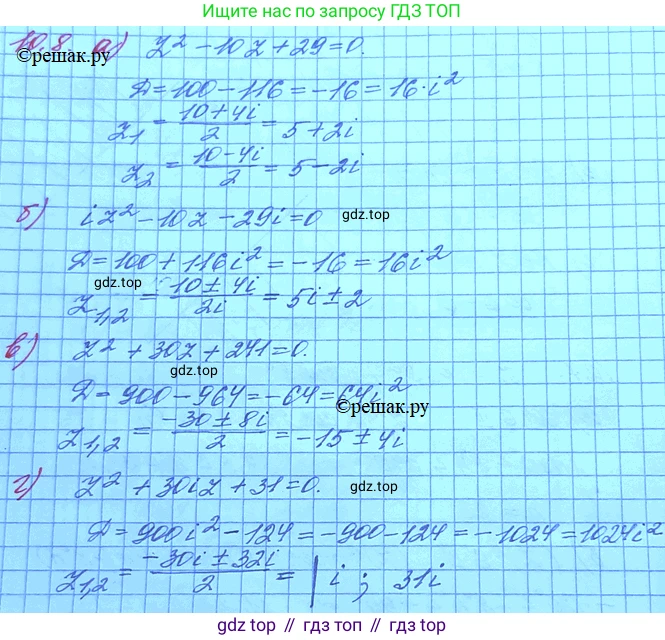 Ищите нас по запросу ГДЗ ТОП
10.8. а) z² - 10z + 29 = 0.
©решак.ру
D = 100 - 116 = -16 = 16·i²
z₁ = (10+4i)/2 = 5 + 2i
z₂ = (10-4i)/2 = 5 - 2i
б) iz² - 10z - 29i = 0
gdz.top
D = 100 + 116i² = -16 = 16i²
gdz.top
z₁,₂ = (10±4i)/2i = 5i ± 2
в) z² + 30z + 241 = 0.
gdz.top
D = 900 - 964 = -64 = 64i²
©решак.ру
z₁,₂ = (-30±8i)/2 = -15 ± 4i
г) z² + 30iz + 31 = 0.
gdz.top
D = 900i² - 124 = -900 - 124 = -1024 = 1024i²
z₁,₂ = (-30i±32i)/2 = | i ; 31i
gdz.top // гдз.топ // gdz.top // гдз.топ